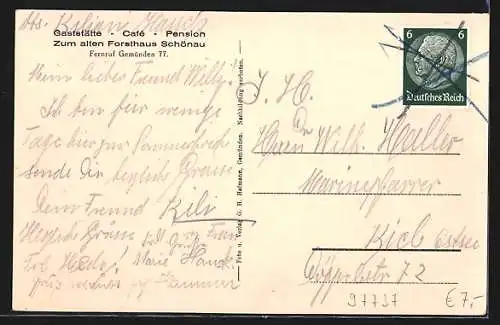 Abs. Kilian Hauck
Gaststätte - Café - Pension
Zum alten Forsthaus Schönau
Fernruf Gemünden 77.
Mein lieber Freund Willy!
Ich bin für wenige
Tage hier zur Sommerfrisch
sende Dir herzliche Grüsse
Dein Freund Kili
Herzliche Grüsse
Marie Hauck
Foto u. Verlag G. H. Hofmann, Gemünden. Nachbildung verboten.
6 6
Deutsches Reich
S. H.
Herrn Wilh. Haller
Marinepfarrer
Kiel Ostsee
72
97797
€ 7,-